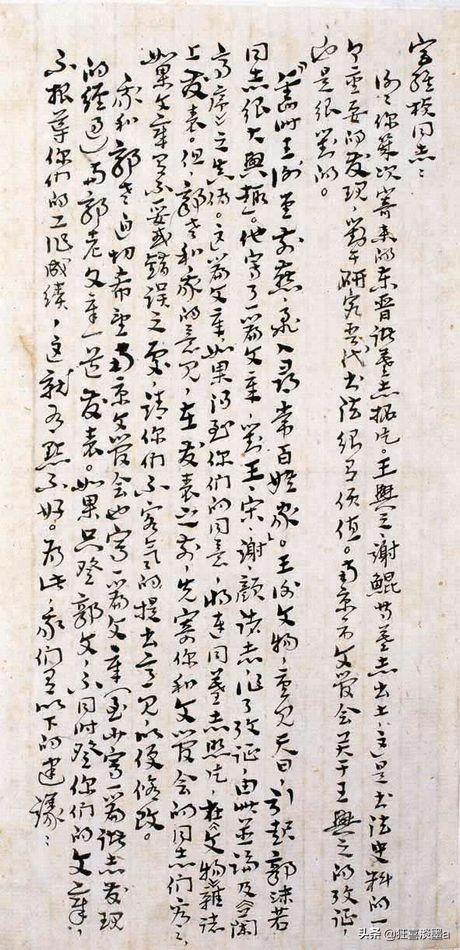 宫维桢同志：
谢谢你几次寄来的东晋诸墓志拓片。王興之、谢鲲等墓志出土，这是书法史料的一
个重要的发现，对于研究当代书法很有价值。南京市文管会关于王興之的考证，
也是很对的。
“舊时王谢堂前燕，飞入尋常百姓家”。王谢文物，重见天日，引起郭沫若
同志很大興趣。他写了一篇文章，对王、宋、谢、颜诸志，作了考证，由此並论及《兰
亭序》之真伪。这篇文章如果得到你们的同意，将连同墓志照片，在《文物》雜志
上发表。但，郭老和我的意见，在发表之前，先寄你和文管会的同志们看看，
如果文章有不妥或错误之处，请你们不客气的提出意见，以便修改。
我和郭老迫切希望南京文管会也写一篇文章（至少写一篇诸志发现
的经过）与郭老文章一道发表。如果只登郭文，不同时登你们的文章，
不报導你们的工作成绩，这就有点不好。为此，我们有以下的建议：
头条 @狂喜般墨a